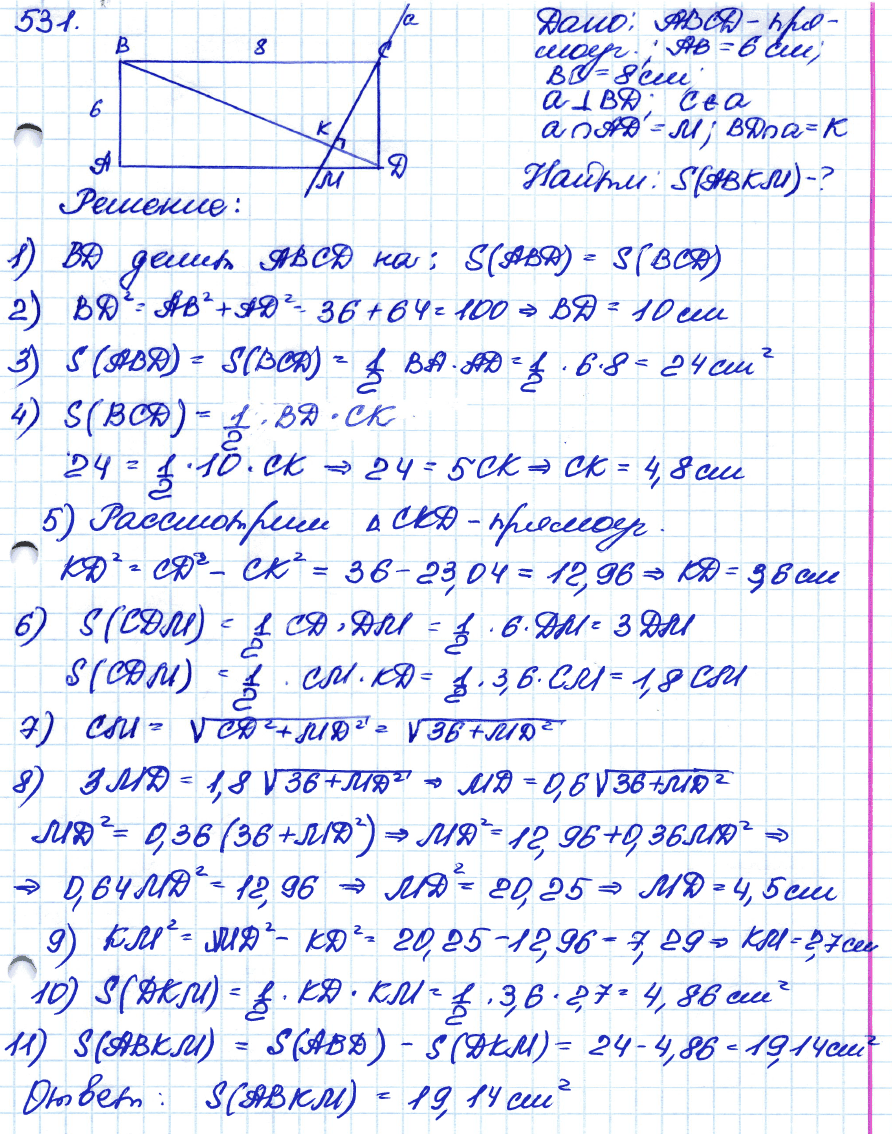 531.
a
B 8 C
6
K
A M D
Дано: ABCD - пря-
моуг.; AB = 6 см;
BC = 8 см;
a ⊥ BD; C ∈ a
a ∩ AD = M; BD ∩ a = K
Найти: S(ABKM) - ?
Решение:
1) BD делит ABCD на: S(ABD) = S(BCD)
2) BD² = AB² + AD² = 36 + 64 = 100 ⇒ BD = 10 см
3) S(ABD) = S(BCD) = 1/2 BA · AD = 1/2 · 6 · 8 = 24 см²
4) S(BCD) = 1/2 · BD · CK
24 = 1/2 · 10 · CK ⇒ 24 = 5CK ⇒ CK = 4,8 см
5) Рассмотрим △ CKD - прямоуг.
KD² = CD² - CK² = 36 - 23,04 = 12,96 ⇒ KD = 3,6 см
6) S(CDM) = 1/2 CD · DM = 1/2 · 6 · DM = 3 DM
S(CDM) = 1/2 · CM · KD = 1/2 · 3,6 · CM = 1,8 CM
7) CM = √(CD² + MD²) = √(36 + MD²)
8) 3MD = 1,8 √(36 + MD²) ⇒ MD = 0,6 √(36 + MD²)
MD² = 0,36 (36 + MD²) ⇒ MD² = 12,96 + 0,36MD² ⇒
⇒ 0,64MD² = 12,96 ⇒ MD² = 20,25 ⇒ MD = 4,5 см
9) KM² = MD² - KD² = 20,25 - 12,96 = 7,29 ⇒ KM = 2,7 см
10) S(DKM) = 1/2 · KD · KM = 1/2 · 3,6 · 2,7 = 4,86 см²
11) S(ABKM) = S(ABD) - S(DKM) = 24 - 4,86 = 19,14 см²
Ответ: S(ABKM) = 19,14 см²